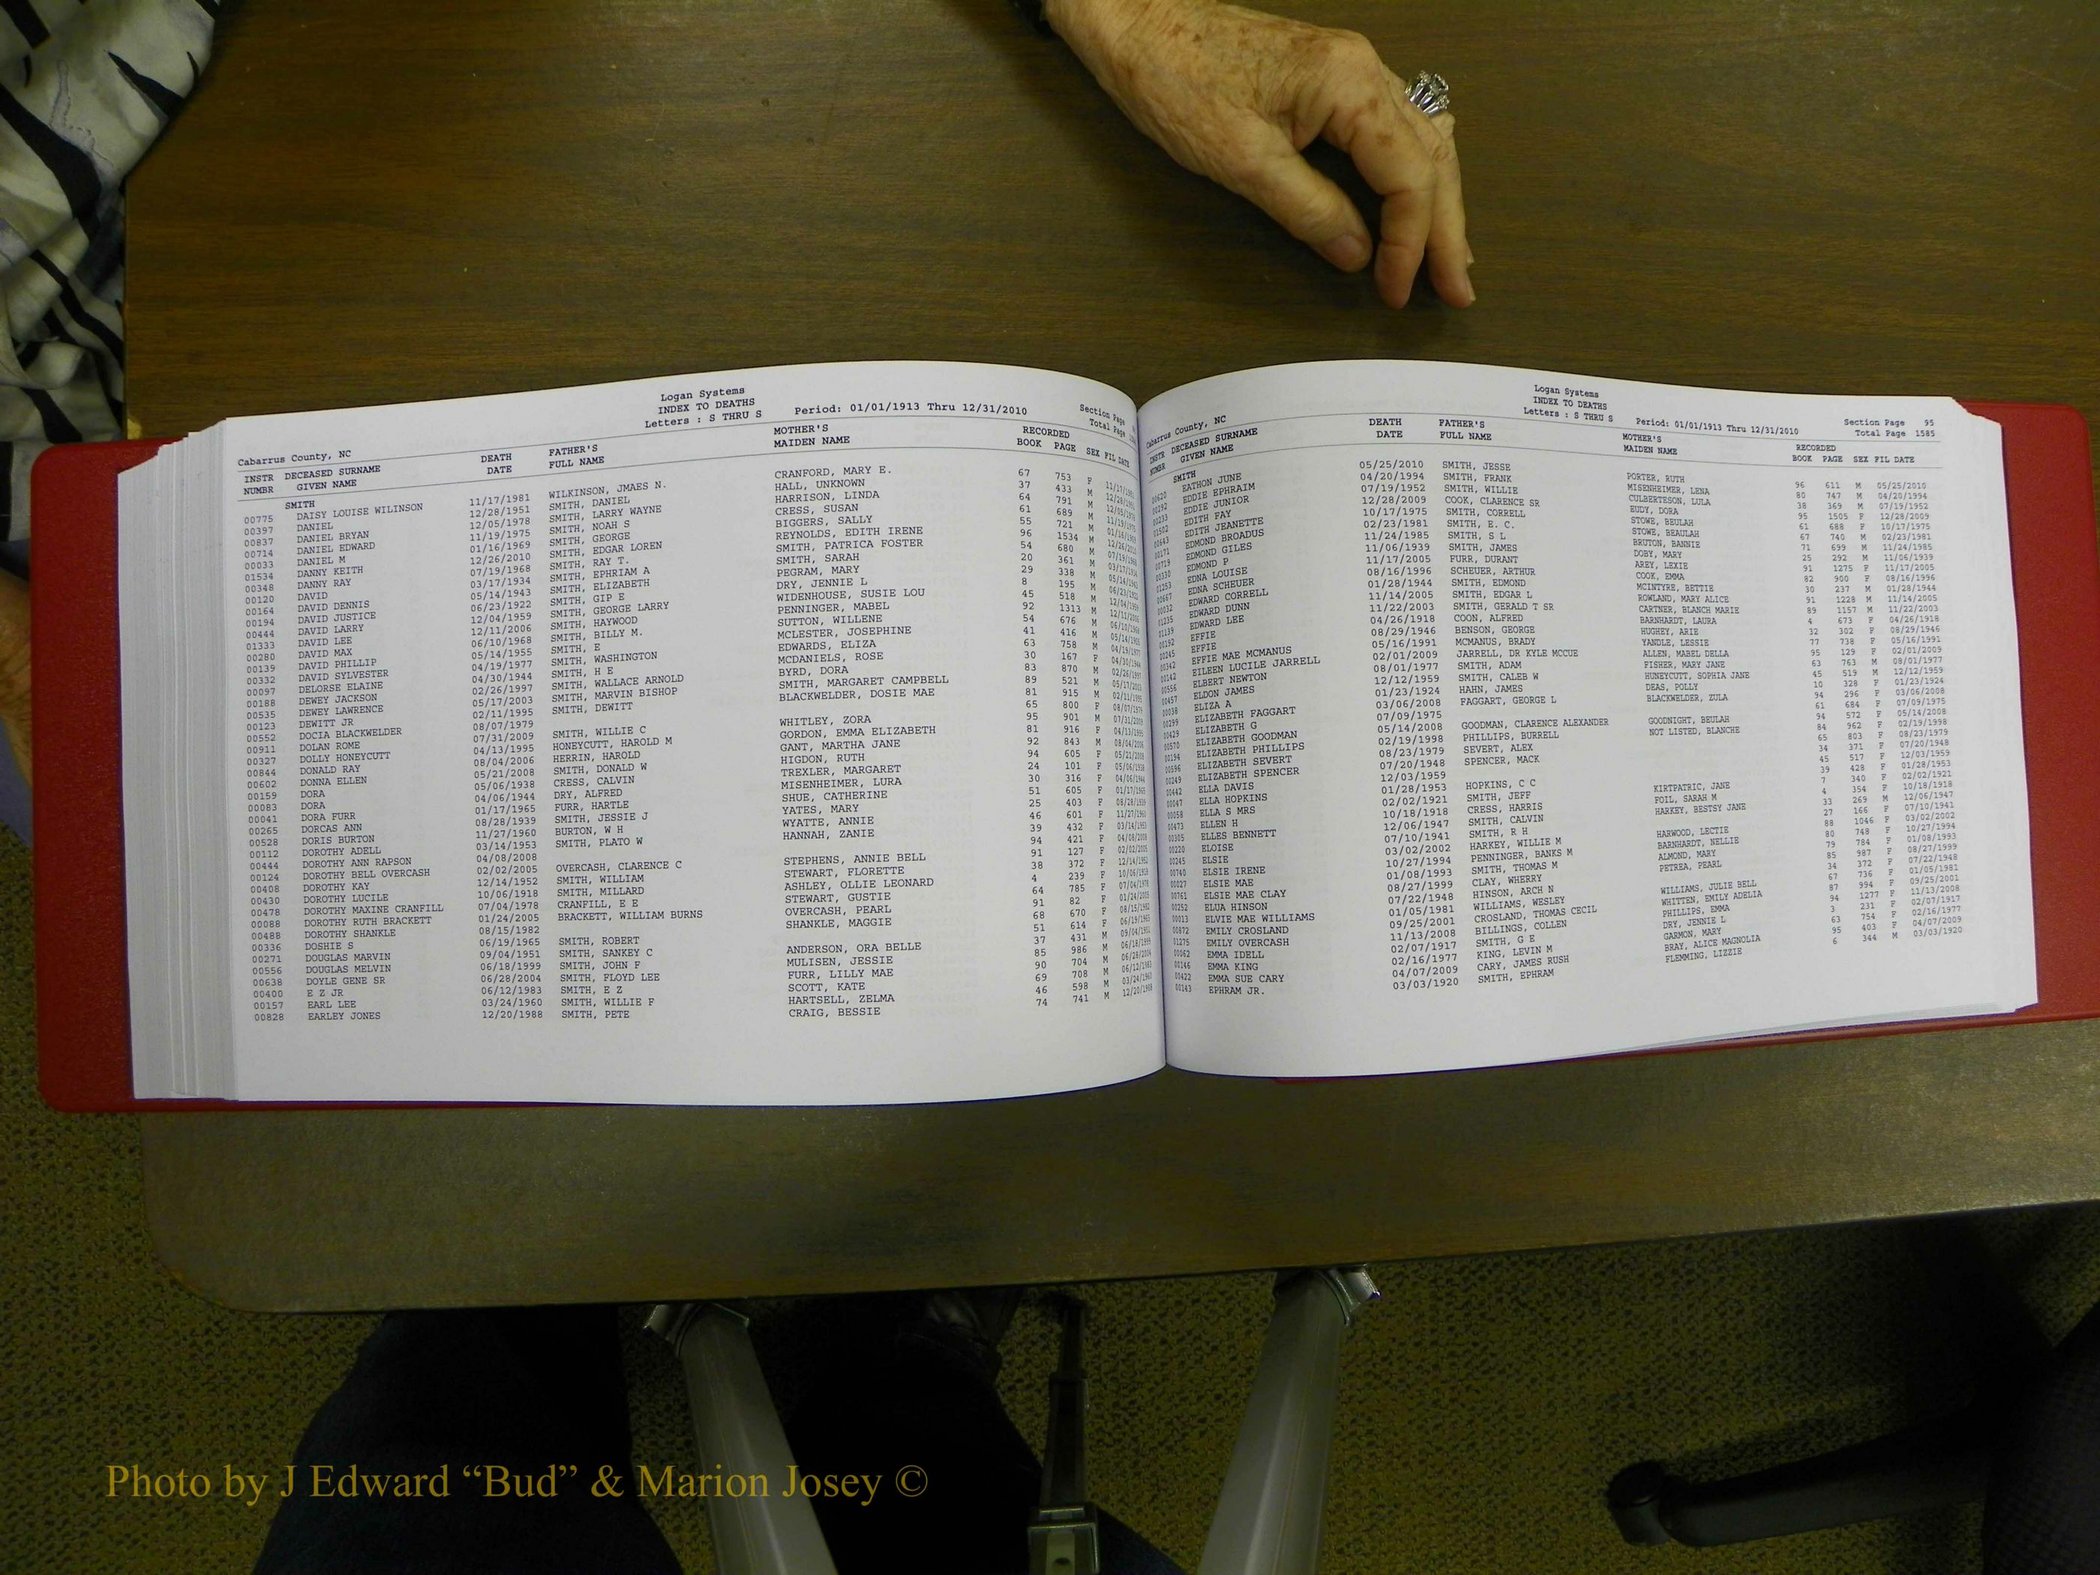 Logan Systems
INDEX TO DEATHS
Letters : S THRU S Period: 01/01/1913 Thru 12/31/2010 Section Page
Cabarrus County, NC Total Page
INSTR NUMBR DECEASED SURNAME GIVEN NAME DEATH DATE FATHER'S FULL NAME MOTHER'S MAIDEN NAME RECORDED BOOK PAGE SEX FIL DATE
SMITH
00775 DAISY LOUISE WILINSON 11/17/1981 WILKINSON, JMAES N. CRANFORD, MARY E. 67 753 F
00397 DANIEL 12/28/1951 SMITH, DANIEL HALL, UNKNOWN 37 433 M
00837 DANIEL BRYAN 12/05/1978 SMITH, LARRY WAYNE HARRISON, LINDA 64 791 M
00714 DANIEL EDWARD 11/19/1975 SMITH, NOAH S CRESS, SUSAN 61 689 M
00033 DANIEL M 01/16/1969 SMITH, GEORGE BIGGERS, SALLY 55 721 M
01534 DANNY KEITH 12/26/2010 SMITH, EDGAR LOREN REYNOLDS, EDITH IRENE 96 1534 M
00348 DANNY RAY 07/19/1968 SMITH, RAY T. SMITH, PATRICA FOSTER 54 680 M
00120 DAVID 03/17/1934 SMITH, EPHRIAM A SMITH, SARAH 20 361 M
00164 DAVID DENNIS 05/14/1943 SMITH, ELIZABETH PEGRAM, MARY 29 338 M
00194 DAVID JUSTICE 06/23/1922 SMITH, GIP E DRY, JENNIE L 8 195 M
00444 DAVID LARRY 12/04/1959 SMITH, GEORGE LARRY WIDENHOUSE, SUSIE LOU 45 518 M
01333 DAVID LEE 12/11/2006 SMITH, HAYWOOD PENNINGER, MABEL 92 1313 M
00280 DAVID MAX 06/10/1968 SMITH, BILLY M. SUTTON, WILLENE 54 676 M
00139 DAVID PHILLIP 05/14/1955 SMITH, E MCLESTER, JOSEPHINE 41 416 M
00332 DAVID SYLVESTER 04/19/1977 SMITH, WASHINGTON EDWARDS, ELIZA 63 758 M
00097 DELORSE ELAINE 04/30/1944 SMITH, H E MCDANIELS, ROSE 30 167 F
00188 DEWEY JACKSON 02/26/1997 SMITH, WALLACE ARNOLD BYRD, DORA 83 870 M
00535 DEWEY LAWRENCE 05/17/2003 SMITH, MARVIN BISHOP SMITH, MARGARET CAMPBELL 89 521 M
00123 DEWITT JR 02/11/1995 SMITH, DEWITT BLACKWELDER, DOSIE MAE 81 915 M
00552 DOCIA BLACKWELDER 08/07/1979 65 800 F
00911 DOLAN ROME 07/31/2009 SMITH, WILLIE C WHITLEY, ZORA 95 901 M
00327 DOLLY HONEYCUTT 04/13/1995 HONEYCUTT, HAROLD M GORDON, EMMA ELIZABETH 81 916 F
00844 DONALD RAY 08/04/2006 HERRIN, HAROLD GANT, MARTHA JANE 92 843 M
00602 DONNA ELLEN 05/21/2008 SMITH, DONALD W HIGDON, RUTH 94 605 F
00159 DORA 05/06/1938 CRESS, CALVIN TREXLER, MARGARET 24 101 F
00083 DORA 04/06/1944 DRY, ALFRED MISENHEIMER, LURA 30 316 F
00041 DORA FURR 01/17/1965 FURR, HARTLE SHUE, CATHERINE 51 605 F
00265 DORCAS ANN 08/28/1939 SMITH, JESSIE J YATES, MARY 25 403 F
00528 DORIS BURTON 11/27/1960 BURTON, W H WYATTE, ANNIE 46 601 F
00112 DOROTHY ADELL 03/14/1953 SMITH, PLATO W HANNAH, ZANIE 39 432 F
00444 DOROTHY ANN RAPSON 04/08/2008 94 421 F
00124 DOROTHY BELL OVERCASH 02/02/2005 OVERCASH, CLARENCE C STEPHENS, ANNIE BELL 91 127 F
00408 DOROTHY KAY 12/14/1952 SMITH, WILLIAM STEWART, FLORETTE 38 372 F
00430 DOROTHY LUCILE 10/06/1918 SMITH, MILLARD ASHLEY, OLLIE LEONARD 4 239 F
00478 DOROTHY MAXINE CRANFILL 07/04/1978 CRANFILL, E E STEWART, GUSTIE 64 785 F
00088 DOROTHY RUTH BRACKETT 01/24/2005 BRACKETT, WILLIAM BURNS OVERCASH, PEARL 91 82 F
00488 DOROTHY SHANKLE 08/15/1982 SHANKLE, MAGGIE 68 670 F
00336 DOSHIE S 06/19/1965 SMITH, ROBERT 51 614 F
00271 DOUGLAS MARVIN 09/04/1951 SMITH, SANKEY C ANDERSON, ORA BELLE 37 431 M
00556 DOUGLAS MELVIN 06/18/1999 SMITH, JOHN F MULISEN, JESSIE 85 986 M
00638 DOYLE GENE SR 06/28/2004 SMITH, FLOYD LEE FURR, LILLY MAE 90 704 M
00400 E Z JR 06/12/1983 SMITH, E Z SCOTT, KATE 69 708 M
00157 EARL LEE 03/24/1960 SMITH, WILLIE F HARTSELL, ZELMA 46 598 M
00828 EARLEY JONES 12/20/1988 SMITH, PETE CRAIG, BESSIE 74 741 M
Logan Systems
INDEX TO DEATHS
Letters : S THRU S Period: 01/01/1913 Thru 12/31/2010 Section Page 95
Cabarrus County, NC Total Page 1585
INSTR NUMBR DECEASED SURNAME GIVEN NAME DEATH DATE FATHER'S FULL NAME MOTHER'S MAIDEN NAME RECORDED BOOK PAGE SEX FIL DATE
SMITH
00620 EATHON JUNE 05/25/2010 SMITH, JESSE PORTER, RUTH 96 611 M 05/25/2010
00292 EDDIE EPHRAIM 04/20/1994 SMITH, FRANK MISENHEIMER, LENA 80 747 M 04/20/1994
00233 EDDIE JUNIOR 07/19/1952 SMITH, WILLIE CULBERTSON, LULA 38 369 M 07/19/1952
01502 EDITH FAY 12/28/2009 COOK, CLARENCE SR EUDY, DORA 95 1505 F 12/28/2009
00643 EDITH JEANETTE 10/17/1975 SMITH, CORRELL STOWE, BEULAH 61 688 F 10/17/1975
00171 EDMOND BROADUS 02/23/1981 SMITH, E. C. STOWE, BEAULAH 67 740 M 02/23/1981
00719 EDMOND GILES 11/24/1985 SMITH, S L BRUTON, BANNIE 71 699 M 11/24/1985
00330 EDMOND P 11/06/1939 SMITH, JAMES DOBY, MARY 25 292 M 11/06/1939
01253 EDNA LOUISE 11/17/2005 FURR, DURANT AREY, LEXIE 91 1275 F 11/17/2005
00667 EDNA SCHEUER 08/16/1996 SCHEUER, ARTHUR COOK, EMMA 82 900 F 08/16/1996
00032 EDWARD CORRELL 01/28/1944 SMITH, EDMOND MCINTYRE, BETTIE 30 237 M 01/28/1944
01235 EDWARD DUNN 11/14/2005 SMITH, EDGAR L ROWLAND, MARY ALICE 91 1228 M 11/14/2005
01139 EDWARD LEE 11/22/2003 SMITH, GERALD T SR CARTNER, BLANCH MARIE 89 1157 M 11/22/2003
00192 EFFIE 04/26/1918 COON, ALFRED BARNHARDT, LAURA 4 673 F 04/26/1918
00245 EFFIE 08/29/1946 BENSON, GEORGE HUGHEY, ARIE 32 302 F 08/29/1946
00342 EFFIE MAE MCMANUS 05/16/1991 MCMANUS, BRADY YANDLE, LESSIE 77 738 F 05/16/1991
00142 EILEEN LUCILE JARRELL 02/01/2009 JARRELL, DR KYLE MCCUE ALLEN, MABEL DELLA 95 129 F 02/01/2009
00556 ELBERT NEWTON 08/01/1977 SMITH, ADAM FISHER, MARY JANE 63 763 M 08/01/1977
00457 ELDON JAMES 12/12/1959 SMITH, CALEB W HUNEYCUTT, SOPHIA JANE 45 519 M 12/12/1959
00038 ELIZA A 01/23/1924 HAHN, JAMES DEAS, POLLY 10 328 F 01/23/1924
00299 ELIZABETH FAGGART 03/06/2008 FAGGART, GEORGE L BLACKWELDER, ZULA 94 296 F 03/06/2008
00429 ELIZABETH G 07/09/1975 61 684 F 07/09/1975
00570 ELIZABETH GOODMAN 05/14/2008 GOODMAN, CLARENCE ALEXANDER GOODNIGHT, BEULAH 94 572 F 05/14/2008
00194 ELIZABETH PHILLIPS 02/19/1998 PHILLIPS, BURRELL NOT LISTED, BLANCHE 84 962 F 02/19/1998
00596 ELIZABETH SEVERT 08/23/1979 SEVERT, ALEX 65 803 F 08/23/1979
00249 ELIZABETH SPENCER 07/20/1948 SPENCER, MACK 34 371 F 07/20/1948
00442 ELLA DAVIS 12/03/1959 45 517 F 12/03/1959
00047 ELLA HOPKINS 01/28/1953 HOPKINS, C C KIRTPATRIC, JANE 39 428 F 01/28/1953
00058 ELLA S MRS 02/02/1921 SMITH, JEFF FOIL, SARAH M 7 340 F 02/02/1921
00473 ELLEN H 10/18/1918 CRESS, HARRIS HARKEY, BESTSY JANE 4 354 F 10/18/1918
00305 ELLES BENNETT 12/06/1947 SMITH, CALVIN 33 269 M 12/06/1947
00220 ELOISE 07/10/1941 SMITH, R H HARWOOD, LECTIE 27 166 F 07/10/1941
00245 ELSIE 03/02/2002 HARKEY, WILLIE M BARNHARDT, NELLIE 88 1046 F 03/02/2002
00740 ELSIE IRENE 10/27/1994 PENNINGER, BANKS M ALMOND, MARY 80 748 F 10/27/1994
00027 ELSIE MAE 01/08/1993 SMITH, THOMAS M PETREA, PEARL 79 784 F 01/08/1993
00761 ELSIE MAE CLAY 08/27/1999 CLAY, WHERRY 85 987 F 08/27/1999
00252 ELUA HINSON 07/22/1948 HINSON, ARCH N WILLIAMS, JULIE BELL 34 372 F 07/22/1948
00013 ELVIE MAE WILLIAMS 01/05/1981 WILLIAMS, WESLEY WHITTEN, EMILY ADELIA 67 736 F 01/05/1981
00872 EMILY CROSLAND 09/25/2001 CROSLAND, THOMAS CECIL PHILLIPS, EMMA 87 994 F 09/25/2001
01275 EMILY OVERCASH 11/13/2008 BILLINGS, COLLEN 94 1277 F 11/13/2008
00062 EMMA IDELL 02/07/1917 SMITH, G E DRY, JENNIE L 3 231 F 02/07/1917
00146 EMMA KING 02/16/1977 KING, LEVIN M GARMON, MARY 63 754 F 02/16/1977
00422 EMMA SUE CARY 04/07/2009 CARY, JAMES RUSH BRAY, ALICE MAGNOLIA 95 403 F 04/07/2009
00143 EPHRAM JR. 03/03/1920 SMITH, EPHRAM FLEMMING, LIZZIE 6 344 M 03/03/1920
Photo by J Edward “Bud” & Marion Josey ©